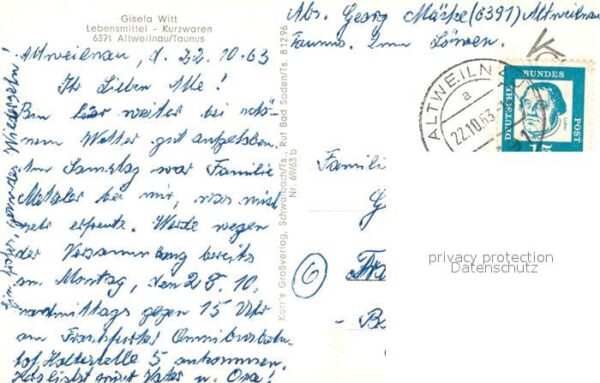 Gisela Witt
Lebensmittel - Kurzwaren
6371 Altweilnau/Taunus
Altweilnau, d. 22.10.63
Ihr Lieben Alle!
Bin hier weiter bei schö-
nem Wetter gut aufgehoben.
Am Samstag war Familie
Metzler bei mir, was mich
sehr erfreute. Werde wegen
der Versammlung bereits
am Montag, den 28.10.
nachmittags gegen 15 Uhr
am Frankfurter Omnibusbahn-
hof Haltestelle 5 ankommen.
Herzlichst euer Vater u. Opa!
Wiedersehen
Korr's Großverlag, Schwalbach/Ts., Ruf Bad Soden/Ts. 81296
Nr. 69/63 b
Abs. Georg (6391) Altweilnau
Taunus. Zum Löwen.
ALTWEILNAU
a
22.10.63
DEUTSCHE BUNDESPOST
15
Famili
G
6
Fra
privacy protection
Datenschutz